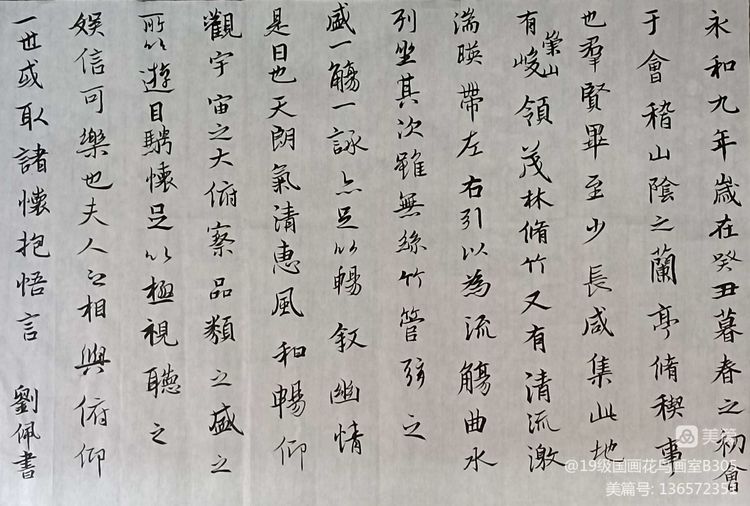 永和九年歲在癸丑暮春之初會
于會稽山陰之蘭亭脩稧事
也羣賢畢至少長咸集此地
有崇山峻領茂林脩竹又有清流激
湍暎帶左右引以為流觴曲水
列坐其次雖無絲竹管弦之
盛一觴一詠亦足以暢叙幽情
是日也天朗氣清惠風和暢仰
觀宇宙之大俯察品類之盛之
所以遊目騁懷足以極視聽之
娛信可樂也夫人之相與俯仰
一世或取諸懷抱悟言
劉佩書
美篇
@19级国画花鸟画室B305
美篇号: 136572351